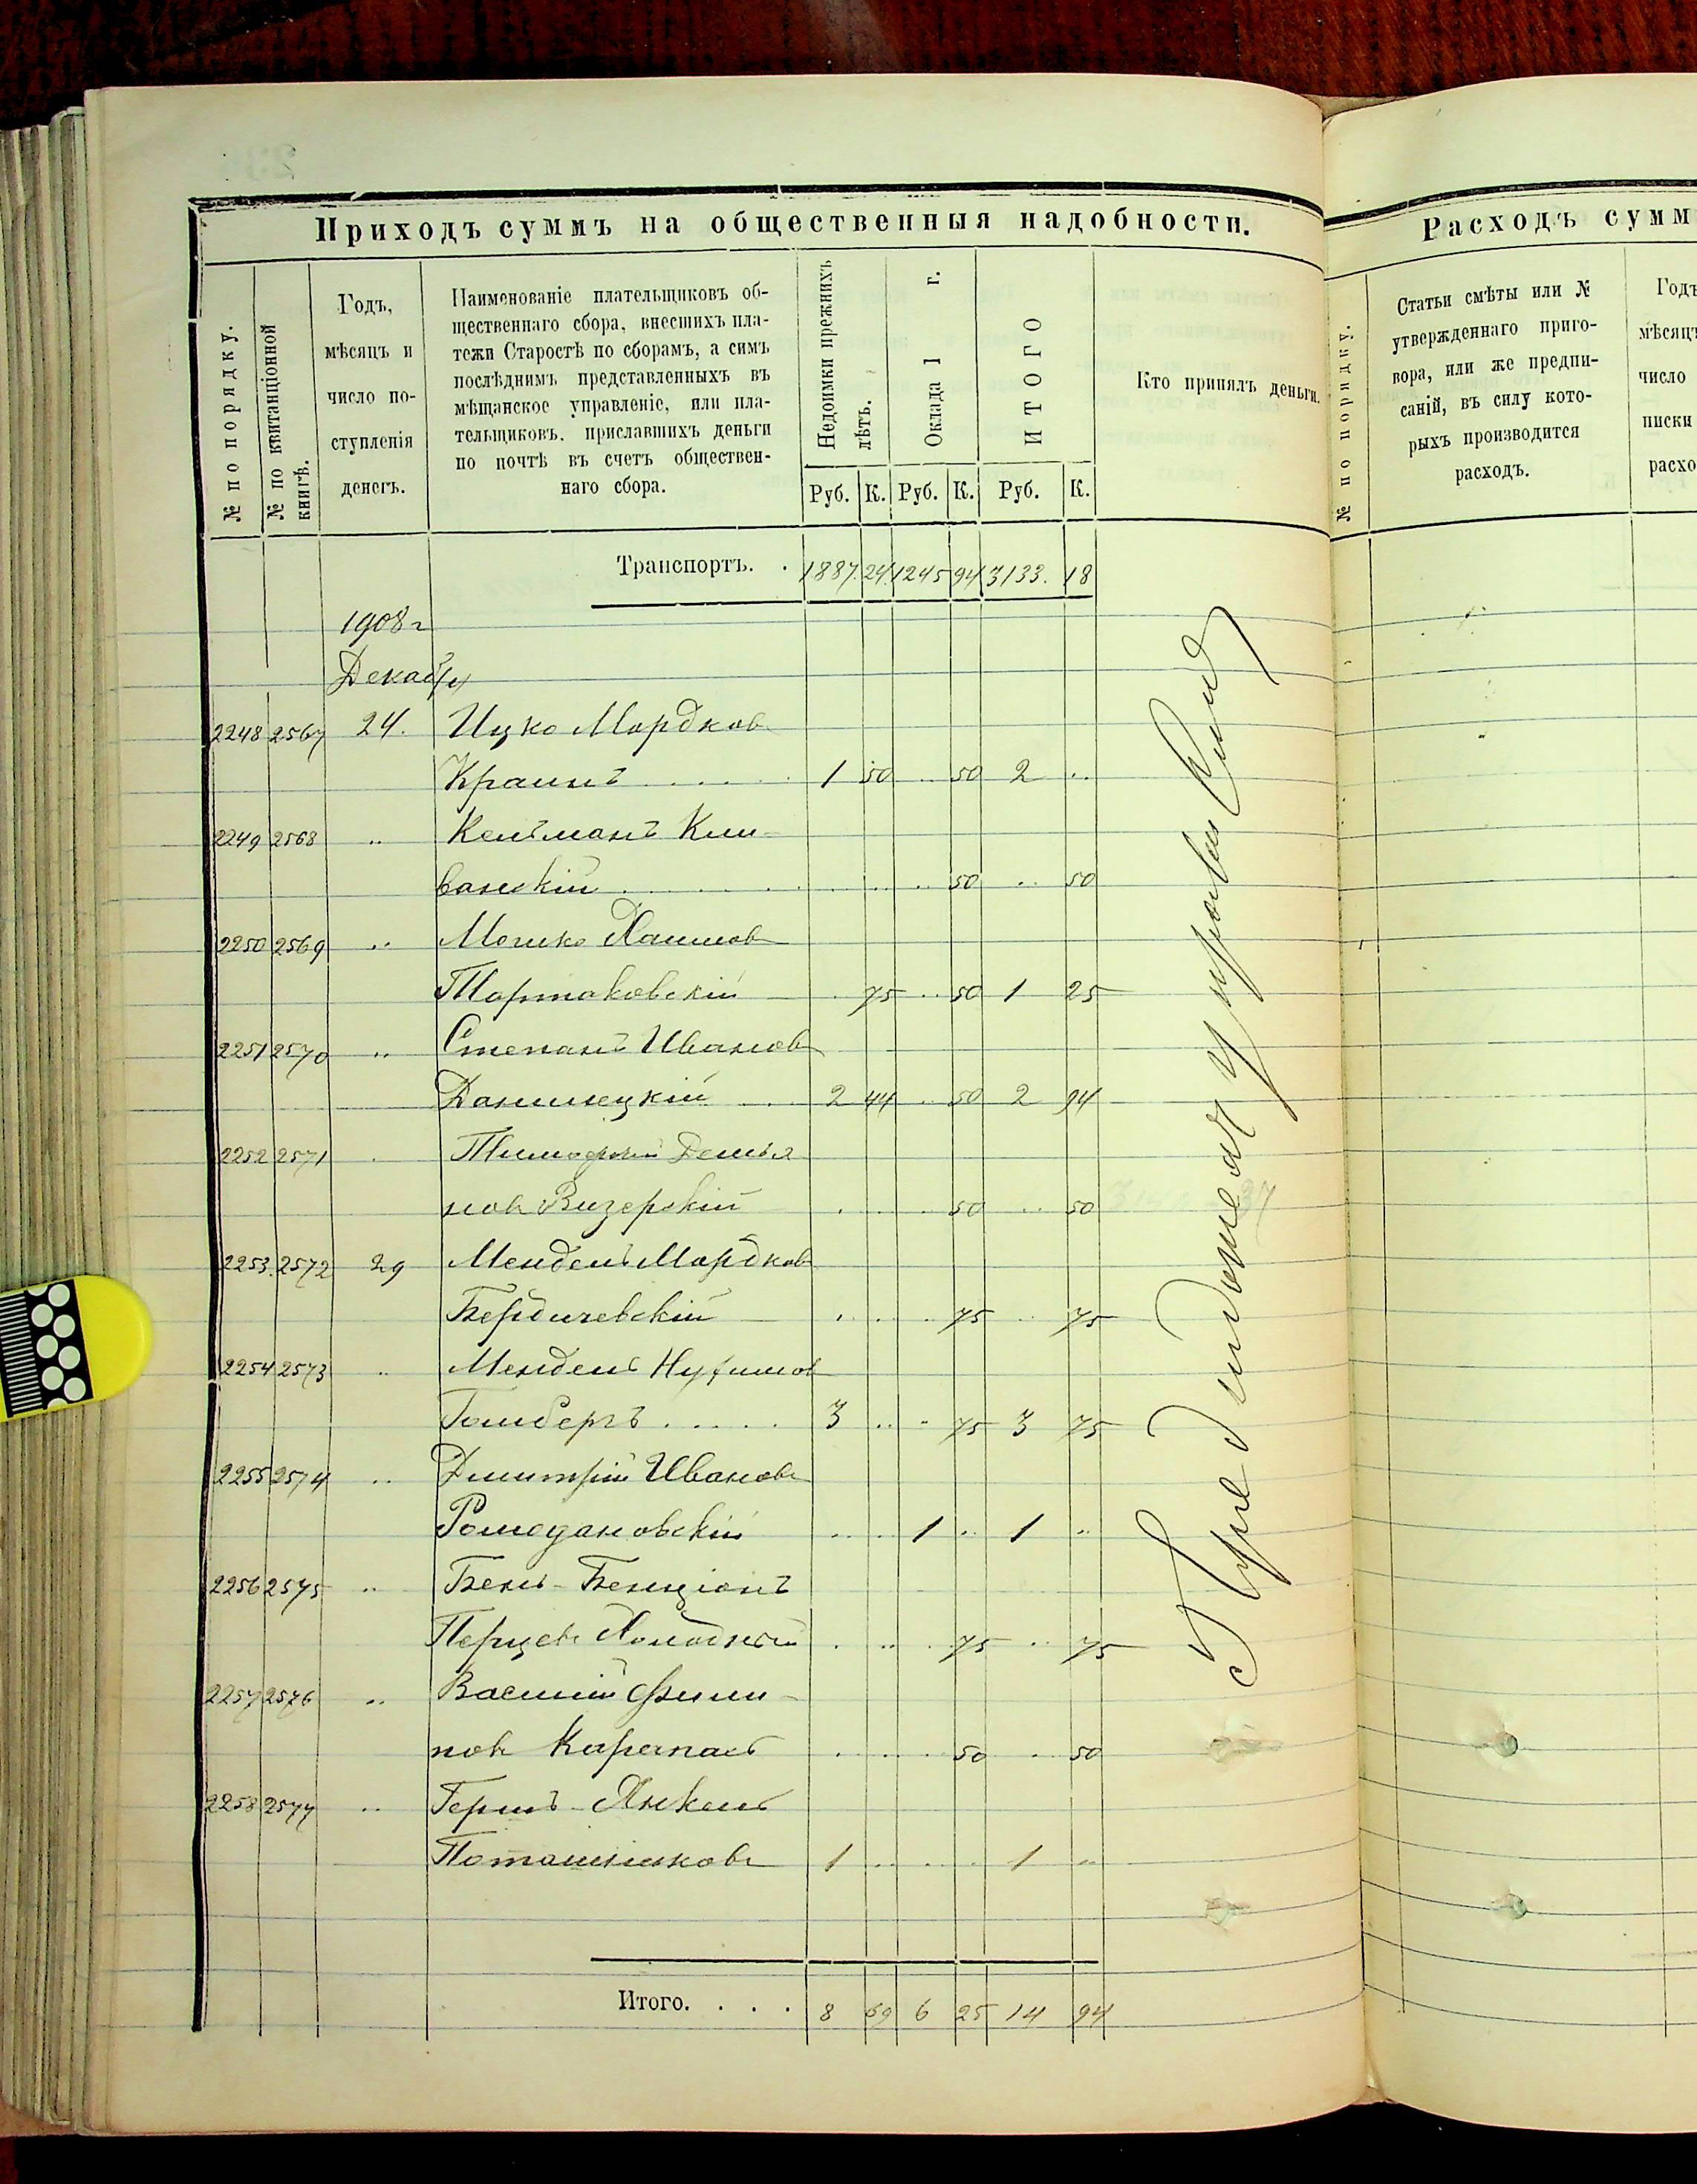 Приходъ суммъ на общественныя надобности.
№ по порядку.
№ по квитанціонной
книгѣ.
Годъ,
мѣсяцъ и
число по-
ступленія
денегъ.
Наименованіе плательщиковъ об-
щественнаго сбора, внесшихъ пла-
тежи Старостѣ по сборамъ, а симъ
послѣднимъ представленныхъ въ
мѣщанское управленіе, или пла-
тельщиковъ, приславшихъ деньги
по почтѣ въ счетъ обществен-
наго сбора.
Недоимки прежнихъ
лѣтъ.
Оклада 1 г.
ИТОГО
Руб. К. Руб. К. Руб. К.
Кто принялъ деньги.
Транспортъ. . 1887. 24 1245 94 3133. 18
1908 г
Декабря
2248 2567 24. Ицко Мордков
Краинъ 1 50 .. 50 2 ..
2249 2568 .. Кельманъ Кли-
ванскій .. .. 50 .. 50
2250 2569 .. Мошко Хаимов
Тартаковскій . 75 .. 50 1 25
2251 2570 .. Степанъ Иванов
Данилецкій 2 44 .. 50 2 94
2252 2571 . Тимофей Демья
нов Визерскій . .. . 50 .. 50
2253. 2572 29 Мендель Мордков
Бердичевскій . .. .. 75 .. 75
2254 2573 .. Мендель Нухимов
Гомбергъ . . . . . 3 .. .. 75 3 75
2255 2574 .. Дмитрій Иванов
Ромодановскій .. .. 1 .. 1 ..
2256 2575 .. Бень-Бенціонъ
Перцев Холодный . .. . 75 .. 75
2257 2576 .. Василій Фили-
пов Карапас . .. . 50 . 50
2258 2577 .. Герш-Янкель
Поташников 1 .. . . 1 ..
Итого. . . . 8 69 6 25 14 94
Предсидатель управы
Расходъ сумм
№ по порядку.
Статьи смѣты или №
утвержденнаго приго-
вора, или же предпи-
саній, въ силу кото-
рыхъ производится
расходъ.
Годъ
мѣсяцъ
число
писки
расхо